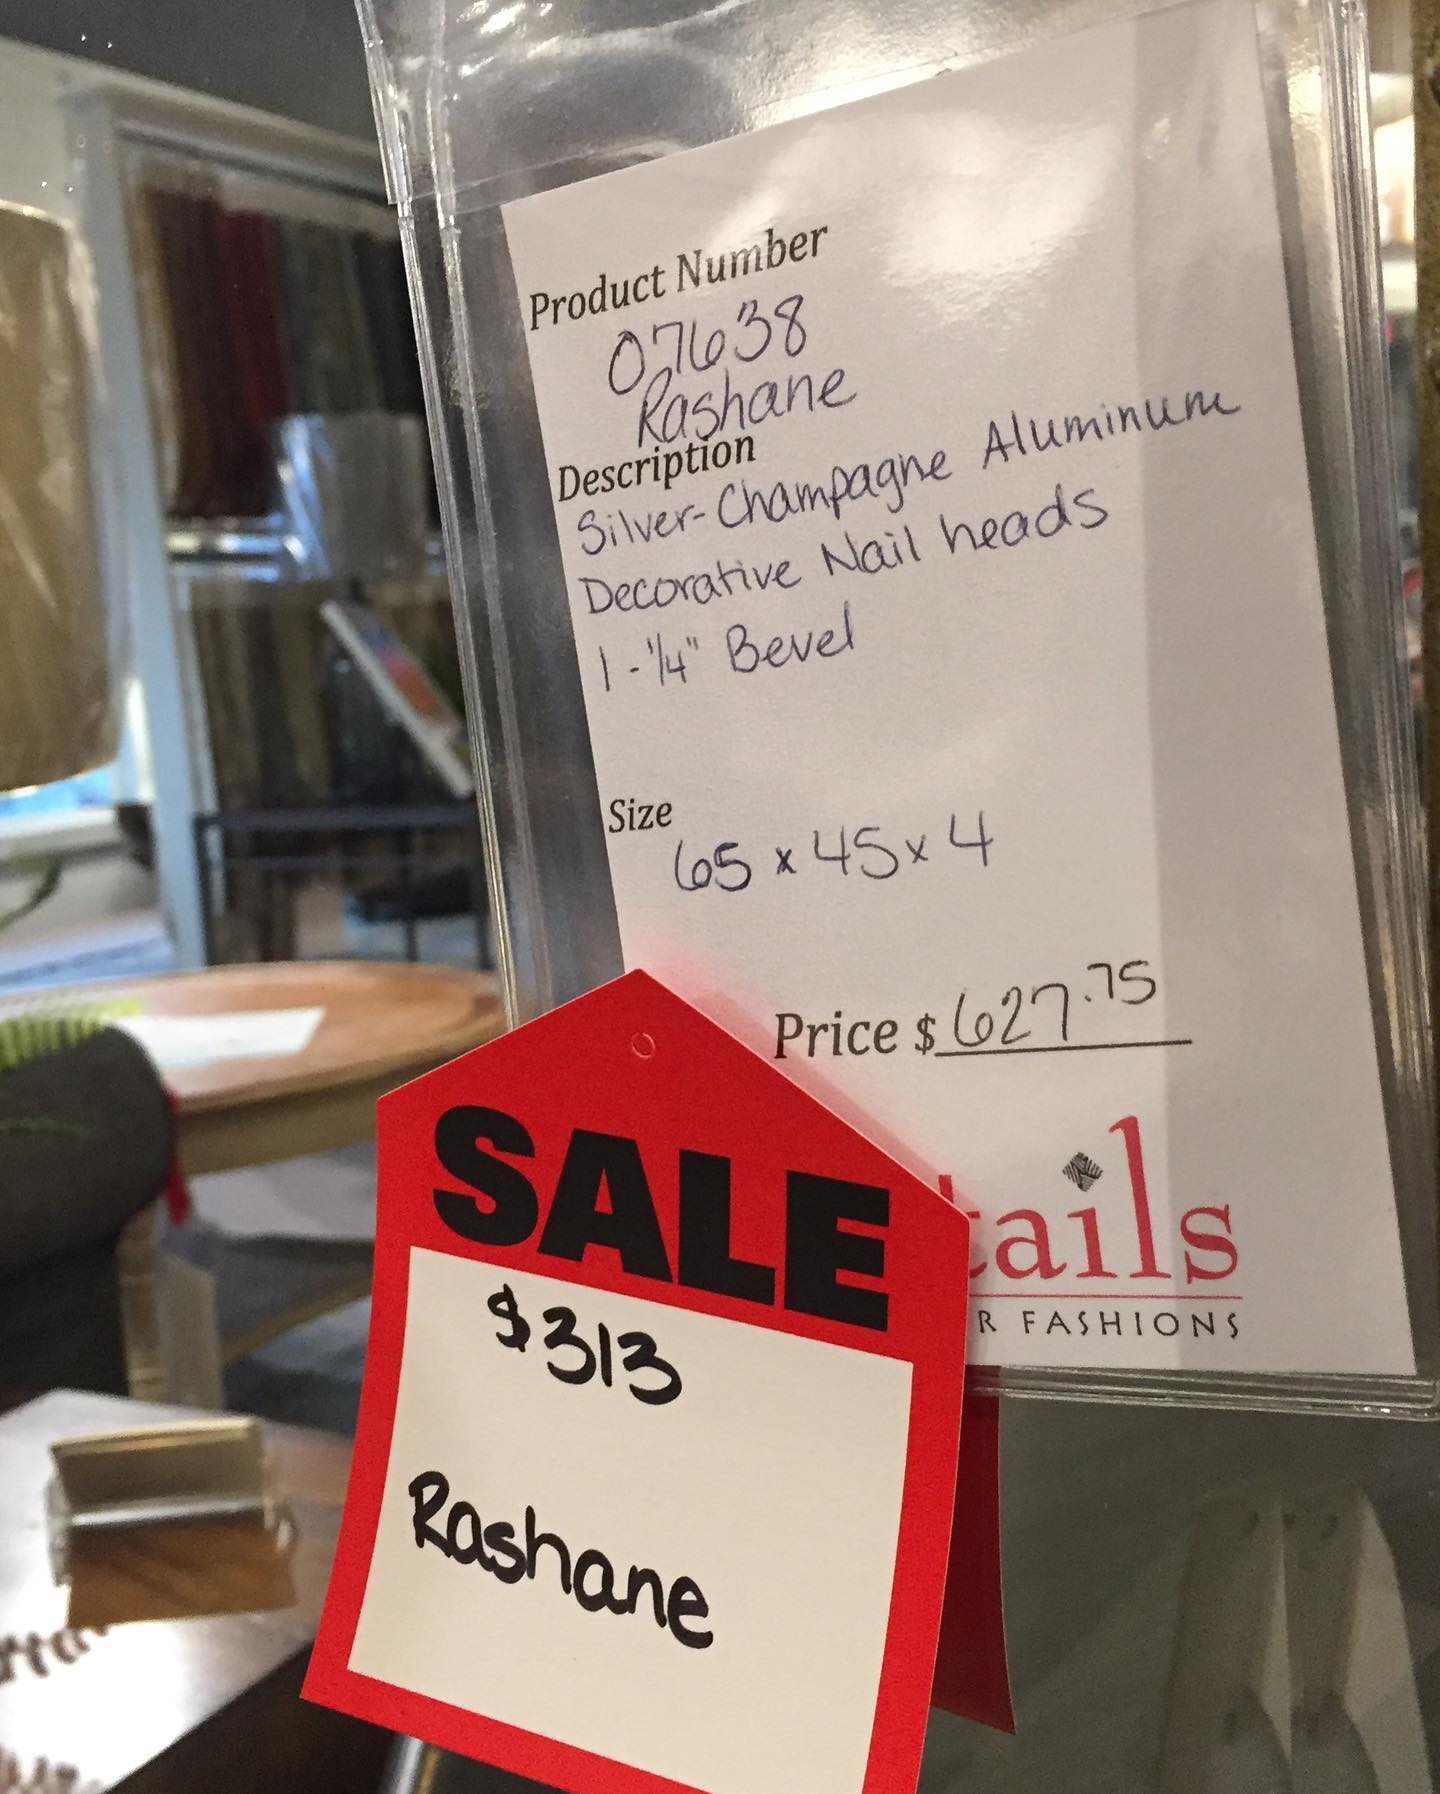 Product Number
07638
Rashane
Description
Silver-Champagne Aluminum
Decorative Nail heads
1-1/4" Bevel
Size
65 x 45 x 4
Price $ 627.75
tails
R FASHIONS
SALE
$313
Rashane